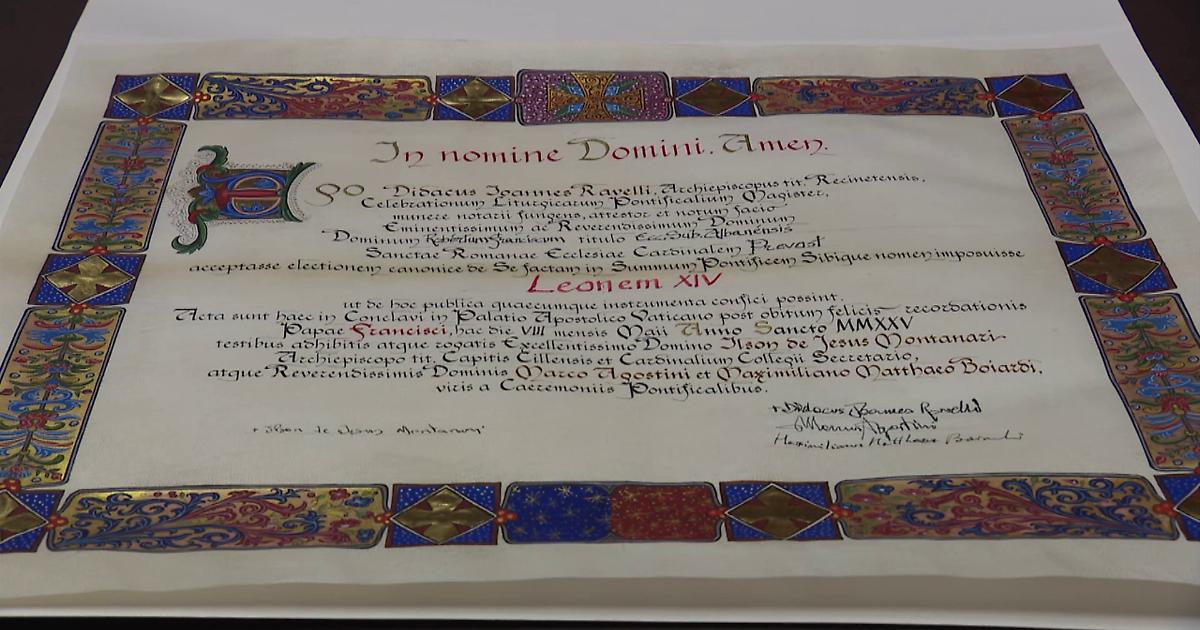 In nomine Domini. Amen.
Ego Didacus Ioannes Ravelli, Archiepiscopus tit. Recinetensis,
Celebrationum Liturgicarum Pontificalium Magister,
munere notarii fungens, attestor et notum facio
Eminentissimum ac Reverendissimum Dominum
Dominum Robertum Franciscum titulo Eccl. Sub. Albanensis
Sanctae Romanae Ecclesiae Cardinalem Prevost
acceptasse electionem canonice de Se factam in Summum Pontificem Sibique nomen imposuisse
Leonem XIV
ut de hoc publica quaecumque instrumenta confici possint.
Acta sunt haec in Conclavi in Palatio Apostolico Vaticano post obitum felicis recordationis
Papae Francisci, hac die VIII mensis Maii Anno Sancto MMXXV
testibus adhibitis atque rogatis Excellentissimo Domino Ilson de Jesus Montanari
Archiepiscopo tit. Capitis Cillensis et Cardinalium Collegii Secretario,
atque Reverendissimis Dominis Marco Agostini et Maximiliano Matthaeo Boiardi,
viris a Caeremoniis Pontificalibus.
+ Didacus Ioannes Ravelli
Marcus Agostini
+ Ilson de Jesus Montanari
Maximilianus Matthaeus Boiardi